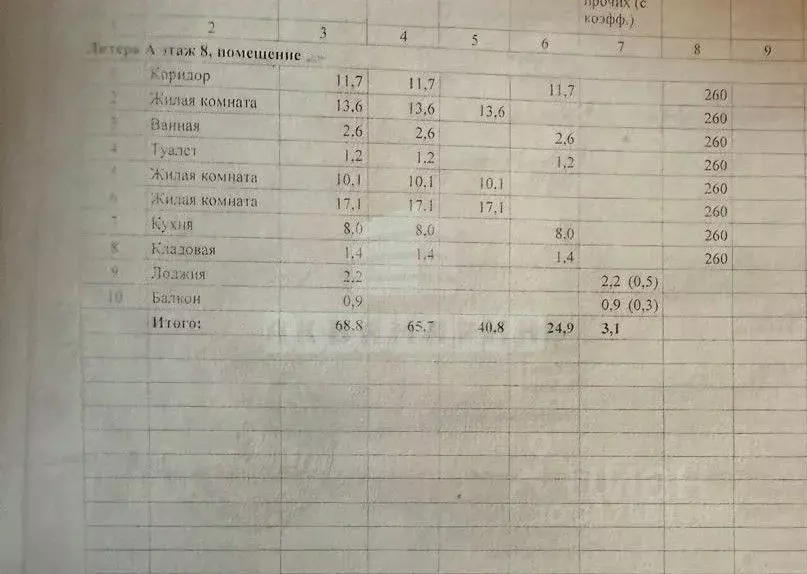 прочих (с
коэфф.)
2 3 4 5 6 7 8 9
Литера А этаж 8, помещение
1 Коридор 11,7 11,7 11,7 260
2 Жилая комната 13,6 13,6 13,6 260
3 Ванная 2,6 2,6 2,6 260
4 Туалет 1,2 1,2 1,2 260
Жилая комната 10,1 10,1 10,1 260
6 Жилая комната 17,1 17,1 17,1 260
7 Кухня 8,0 8,0 8,0 260
8 Кладовая 1,4 1,4 1,4 260
9 Лоджия 2,2 2,2 (0,5)
10 Балкон 0,9 0,9 (0,3)
Итого: 68,8 65,7 40,8 24,9 3,1